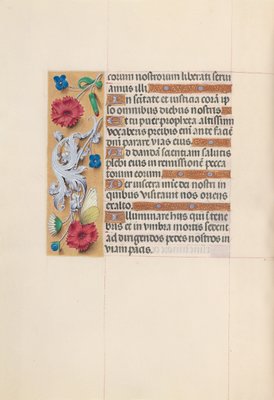 corum nostrorum liberati serui
amus illi.
In scitate et iusticia corā ip
so omnibus diebus nostris.
Et tu puer propheta altissimi
vocaberis preibis eni ante faciē
dni parare vias eius.
Ad dandā scientiam salutis
plebi eius in remissionē pecca
torum eorum.
Per viscera mie dei nostri in
quibus visitauit nos oriens
ex alto.
Illuminare hiis qui ī tene
bris et in vmbra mortis sedent
ad dirigendos pedes nostros in
viam pacis.